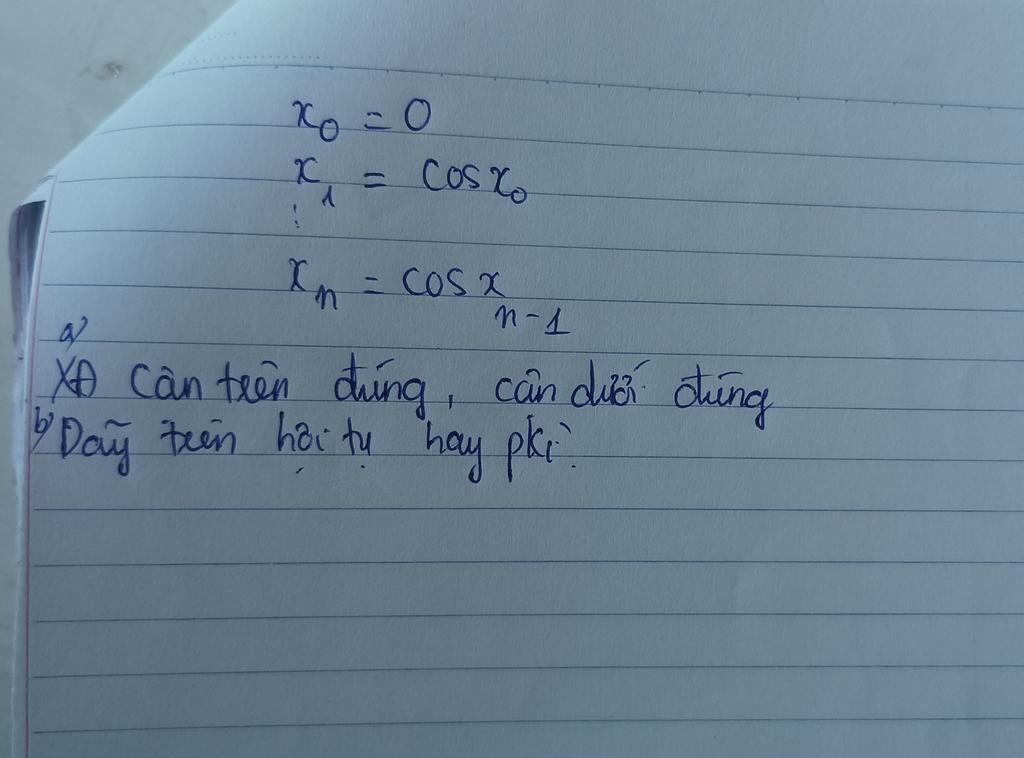 x₀ = 0
x₁ = cos x₀
⋮
xₙ = cos xₙ₋₁
a)
XĐ cân trên đúng, cân dưới đúng
b) Dãy trên hội tụ hay pkì.